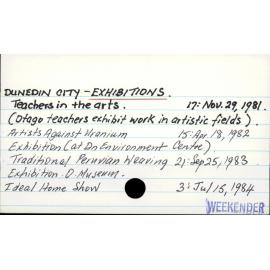 DUNEDIN CITY - EXHIBITIONS.
Teachers in the arts. 17: Nov. 29, 1981.
(Otago teachers exhibit work in artistic fields).
Artists Against Uranium 15: Apr 18, 1982
Exhibition (at Dn Environment Centre)
Traditional Peruvian Weaving 21: Sep 25, 1983
Exhibition. O. Museum.
Ideal Home Show 3: Jul 15, 1984
WEEKENDER